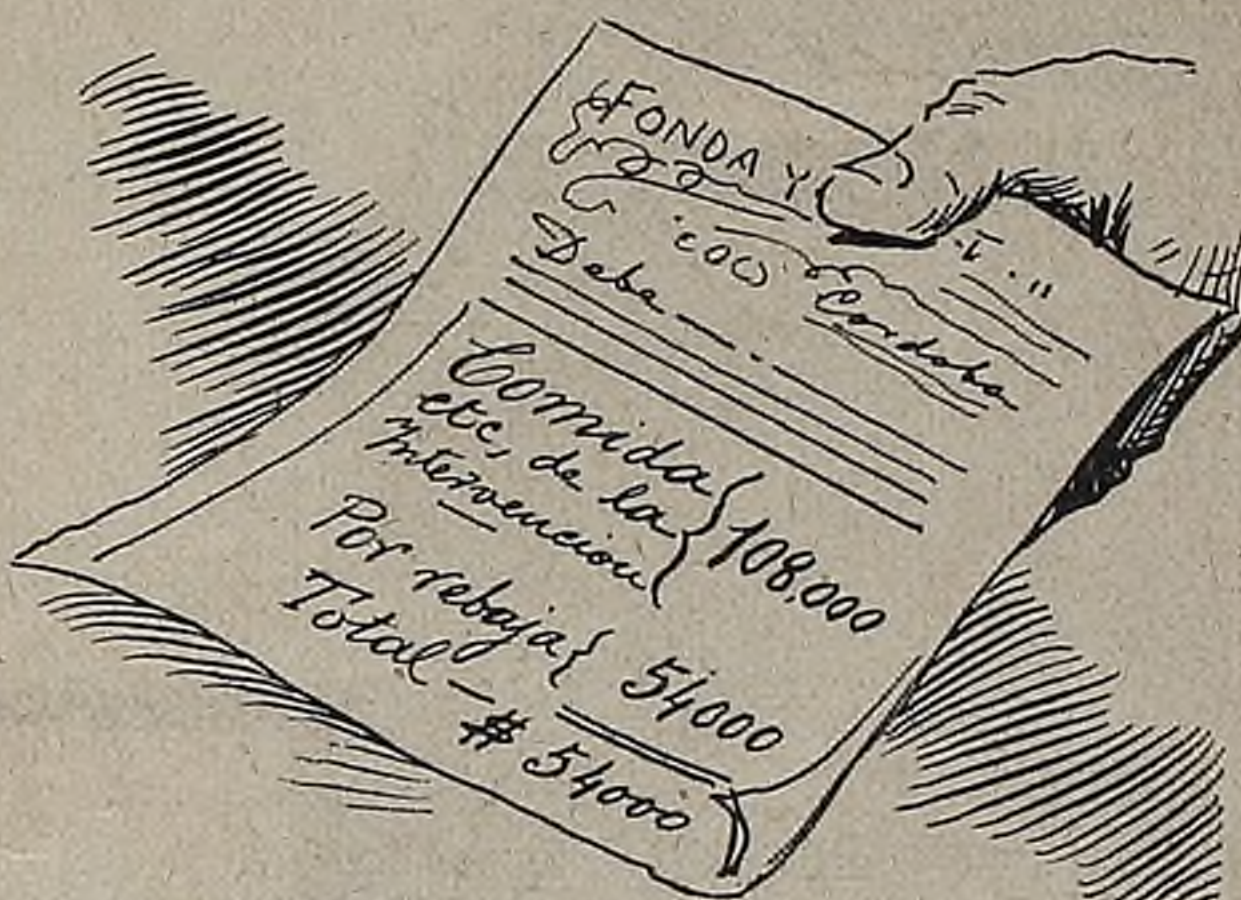 FONDA Y
Cordoba
Debe
Comida
etc, de la
Intervencion
108.000
Por rebaja
54000
Total — $ 54000